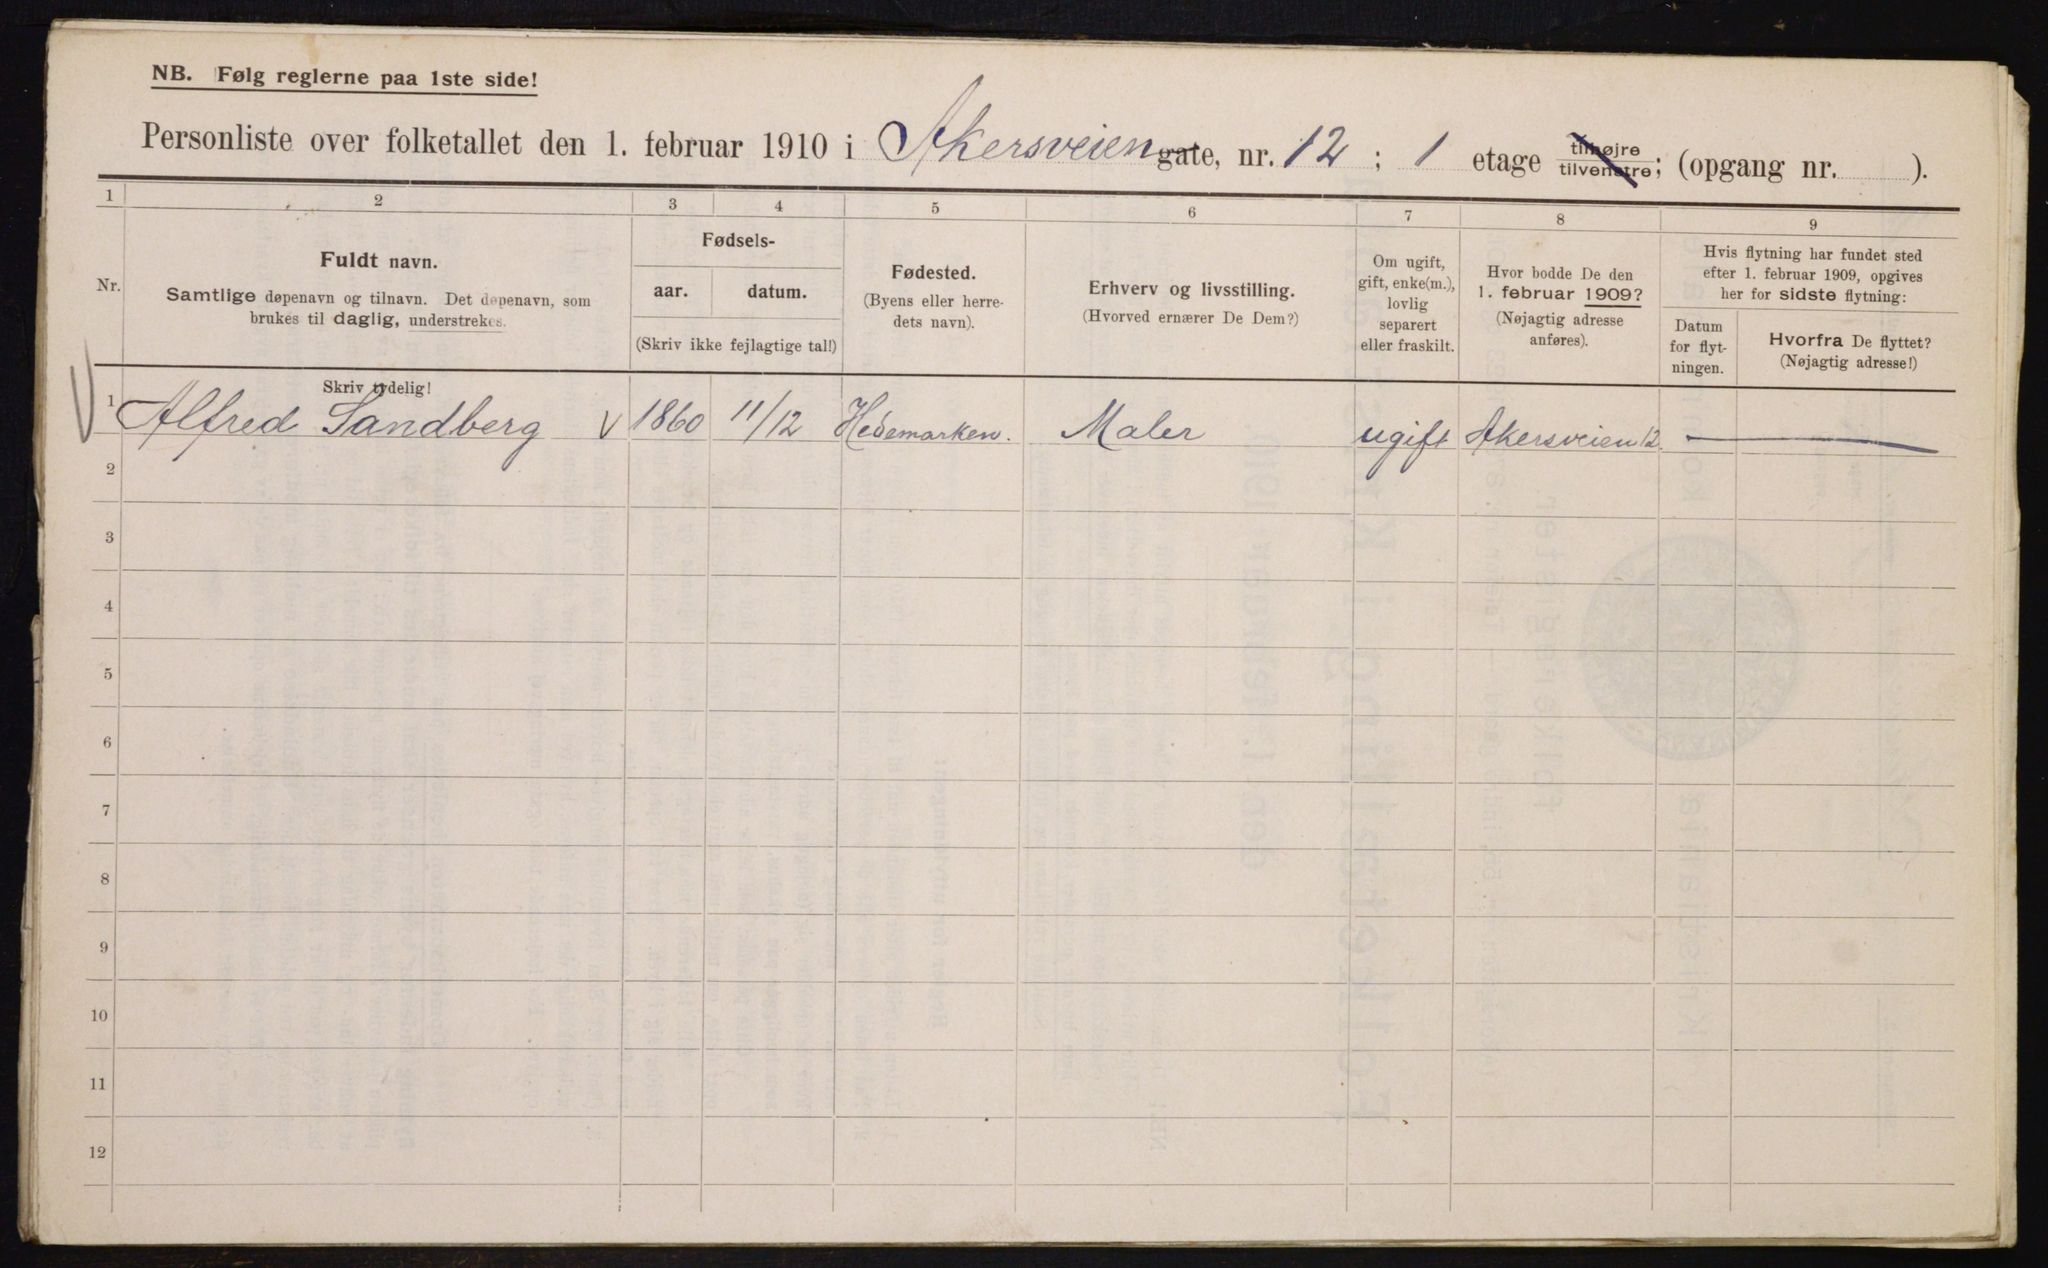 NB. Følg reglerne paa 1ste side!
Personliste over folketallet den 1. februar 1910 i Akersveien gate, nr. 12 ; 1 etage tilhøjre tilvenstre; (opgang nr. ).
1 2 3 4 5 6 7 8 9
Nr.
Fuldt navn.
Samtlige døpenavn og tilnavn. Det døpenavn, som
brukes til daglig, understrekes.
Skriv tydelig!
Fødsels-
aar. datum.
(Skriv ikke fejlagtige tal!)
Fødested.
(Byens eller herre-
dets navn).
Erhverv og livsstilling.
(Hvorved ernærer De Dem?)
Om ugift,
gift, enke(m.),
lovlig
separert
eller fraskilt.
Hvor bodde De den
1. februar 1909?
(Nøjagtig adresse
anføres).
Hvis flytning har fundet sted
efter 1. februar 1909, opgives
her for sidste flytning:
Datum
for flyt-
ningen.
Hvorfra De flyttet?
(Nøjagtig adresse!)
1 Alfred Sandberg V 1860 11/12 Hedemarken. Maler ugift Akersveien 12.
2
3
4
5
6
7
8
9
10
11
12